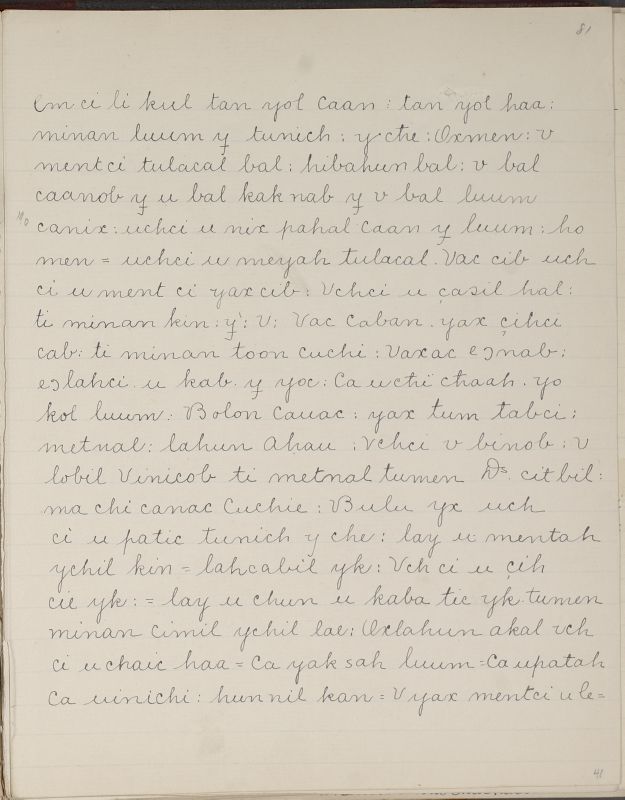 81
em ci li kul tan yol caan : tan yol haa :
minan luum y tunich : y che : Oxmen : v
mentci tulacal bal : hibahun bal : v bal
caanob y u bal kak nab y v bal luum
canix : uchci u nix pahal caan y luum : ho
men = uchci u meyah tulacal . Vac cib uch
ci u ment ci yaxcib : Vchci u çasil hal :
ti minan kin : y : U : Vac Caban . yax çihci
cab : ti minan toon cuchi : Vaxac eɔnab :
eɔlahci . u kab . y yoc : Ca u chi chaah . yo
kol luum : Bolon Cauac : yax tum tabci :
metnal : lahun Ahau : Vchci v binob : v
lobil Vinicob ti metnal tumen Ds. citbil :
ma chi canac Cuchie : Bulu yx uch
ci u patic tunich y che : lay u mentah
ychil kin = lahcabil yk : Vch ci u çih
cie yk : = lay u chun u kaba tic yk . tumen
minan cimil ychil lae : Oxlahun akal vch
ci u chaic haa = Ca yak sah luum = Ca u patah
Ca uinichi : hunnil kan = V yax mentci u le =
41